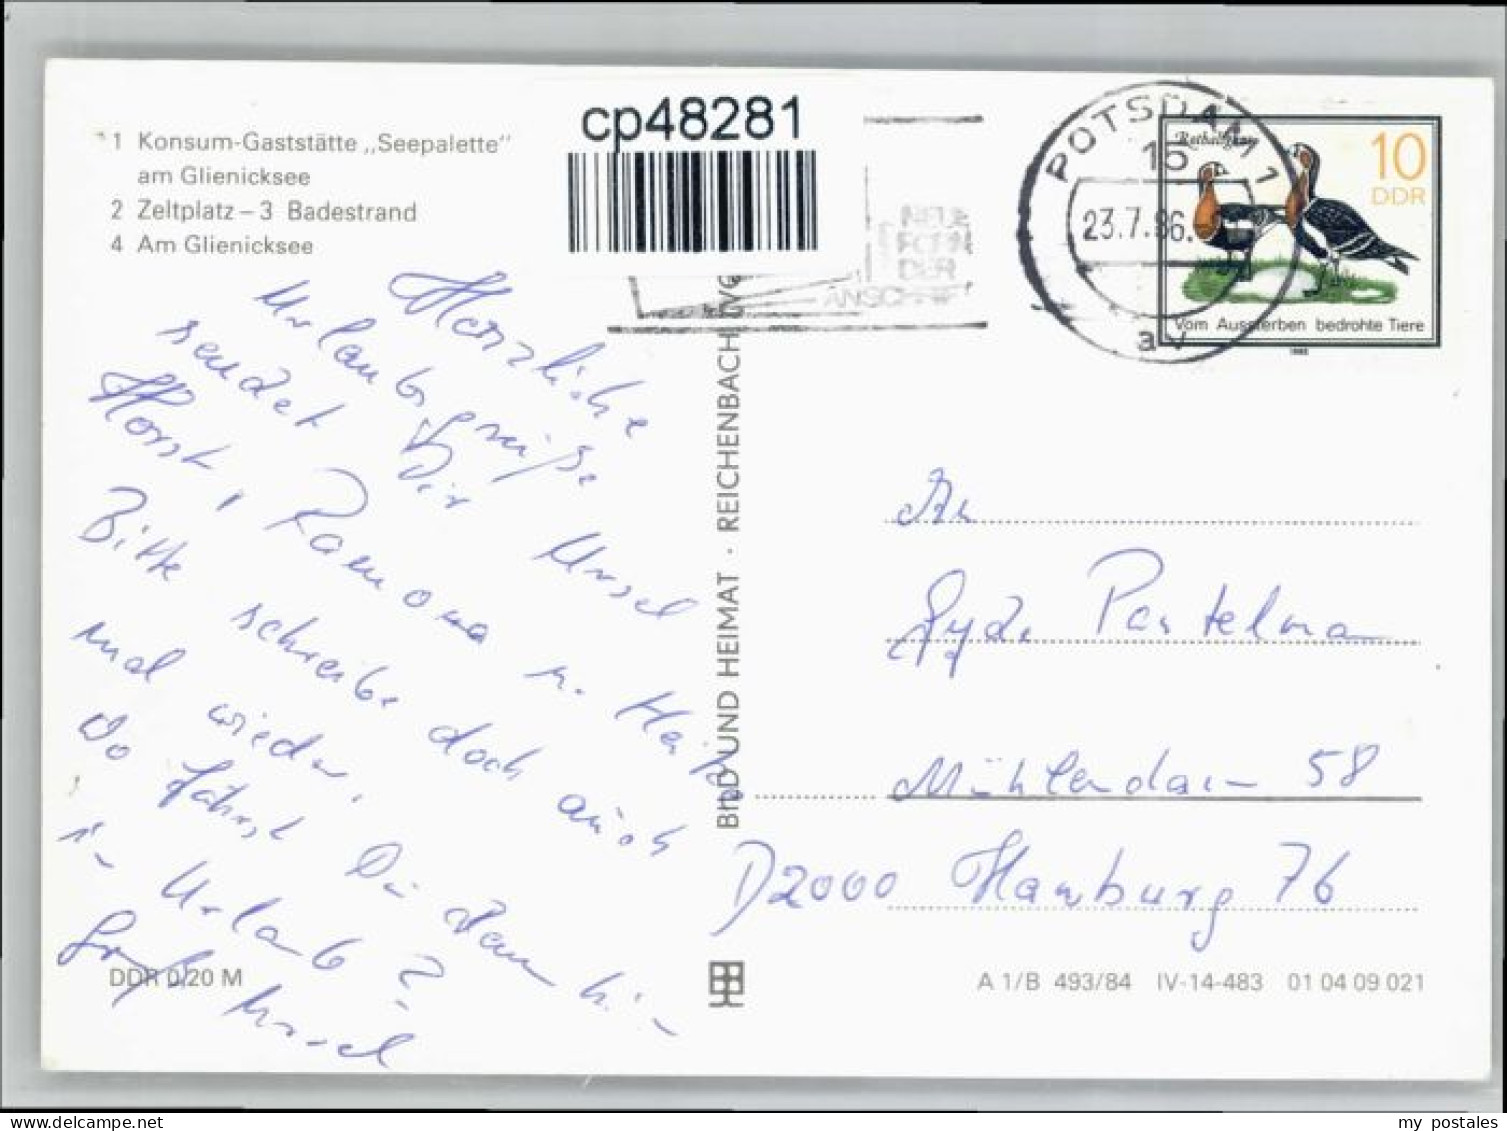 1 Konsum-Gaststätte „Seepalette"
am Glienicksee
2 Zeltplatz – 3 Badestrand
4 Am Glienicksee
cp48281
NEUE
FORM
DER
ANSCHRIFT
POTSDAM 11
15
23.7.86.
av
Rothalsgans
10
DDR
Vom Aussterben bedrohte Tiere
1985
Herzliche
Urlaubsgrüße
sendet Dir Ursel
Horst, Ramona u. Heiko
Bitte schreibe doch auch
mal wieder.
Wo fährst Du denn hin
in Urlaub?
Gruß Ursel
BILD UND HEIMAT · REICHENBACH (VOGTL)
An
Pantelma
Mühlendamm 58
D2000 Hamburg 76
DDR 0,20 M
A 1/B 493/84 IV-14-483 01 04 09 021
my postales